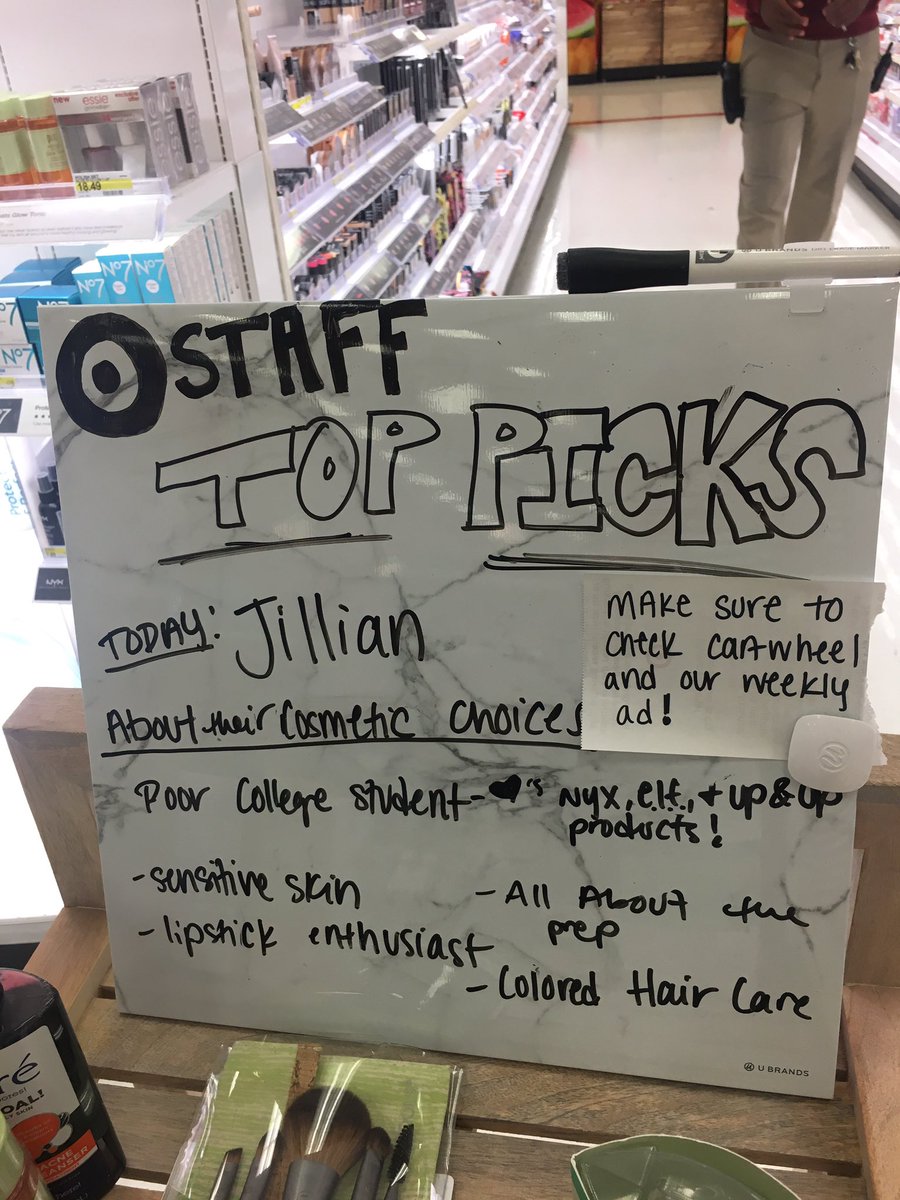 new
essie
exclusive
offer
18.49
No7
No7
No7
NYX
U BRANDS
STAFF
TOP PICKS
TODAY: Jillian
MAKE sure to
check cartwheel
and our weekly
ad!
About their Cosmetic choices
Poor College student - ♥'s NYX, e.l.f., + up & up
products!
- sensitive skin
- lipstick enthusiast
- All About the
prep
- Colored Hair Care
U BRANDS
ré
ACNE
CLEANSER